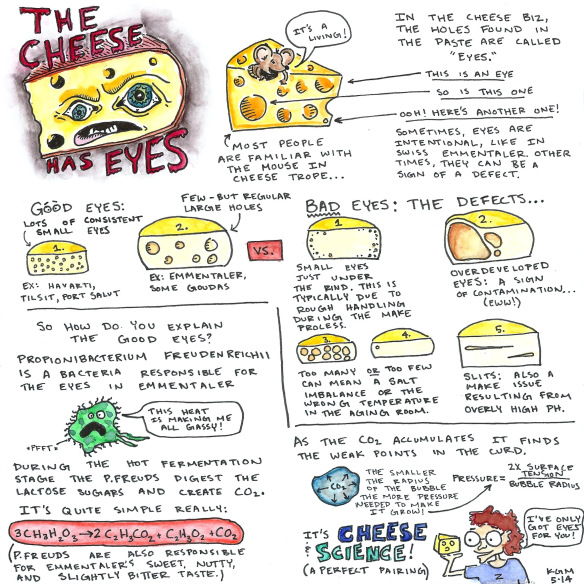 THE
CHEESE
HAS EYES
IT'S A
LIVING!
MOST PEOPLE
ARE FAMILIAR WITH
THE MOUSE IN
CHEESE TROPE...
IN THE CHEESE BIZ,
THE HOLES FOUND IN
THE PASTE ARE CALLED
"EYES."
THIS IS AN EYE
SO IS THIS ONE
OOH! HERE'S ANOTHER ONE!
SOMETIMES, EYES ARE
INTENTIONAL, LIKE IN
SWISS EMMENTALER. OTHER
TIMES, THEY CAN BE A
SIGN OF A DEFECT.
GOOD EYES:
LOTS OF CONSISTENT
SMALL EYES
1.
EX: HAVARTI,
TILSIT, PORT SALUT
FEW-BUT REGULAR
LARGE HOLES
2.
EX: EMMENTALER,
SOME GOUDAS
VS.
BAD EYES: THE DEFECTS...
1.
SMALL EYES
JUST UNDER
THE RIND. THIS IS
TYPICALLY DUE TO
ROUGH HANDLING
DURING THE MAKE
PROCESS.
2.
OVERDEVELOPED
EYES: A SIGN
OF CONTAMINATION...
(EWW!)
3.
4.
TOO MANY OR TOO FEW
CAN MEAN A SALT
IMBALANCE OR THE
WRONG TEMPERATURE
IN THE AGING ROOM.
5.
SLITS: ALSO A
MAKE ISSUE
RESULTING FROM
OVERLY HIGH PH.
SO HOW DO YOU EXPLAIN
THE GOOD EYES?
PROPIONIBACTERIUM FREUDENREICHII
IS A BACTERIA RESPONSIBLE FOR
THE EYES IN EMMENTALER
THIS HEAT
IS MAKING ME
ALL GASSY!
*PFFT*
DURING THE HOT FERMENTATION
STAGE THE P.FREUDS DIGEST THE
LACTOSE SUGARS AND CREATE CO2.
IT'S QUITE SIMPLE REALLY:
3CH3H6O2→2C2H3CO2+C2H3O2+CO2
(P.FREUDS ARE ALSO RESPONSIBLE
FOR EMMENTALER'S SWEET, NUTTY,
AND SLIGHTLY BITTER TASTE.)
AS THE CO2 ACCUMULATES IT FINDS
THE WEAK POINTS IN THE CURD.
CO2
THE SMALLER
THE RADIUS
OF THE BUBBLE
THE MORE PRESSURE
NEEDED TO MAKE
IT GROW!
PRESSURE= 2X SURFACE TENSION
BUBBLE RADIUS
IT'S CHEESE
SCIENCE!
(A PERFECT PAIRING)
I'VE ONLY
GOT EYES
FOR YOU!